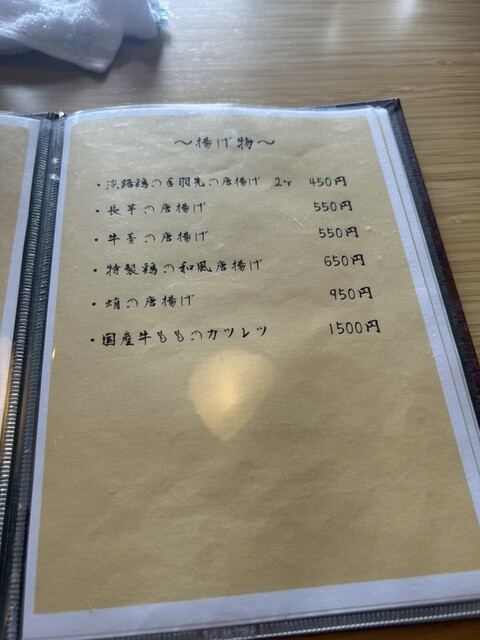 〜揚げ物〜
・淡路鶏の手羽先の唐揚げ 2ヶ 450円
・長芋の唐揚げ 550円
・牛蒡の唐揚げ 550円
・特製鶏の和風唐揚げ 650円
・蛸の唐揚げ 950円
・国産牛もものカツレツ 1500円